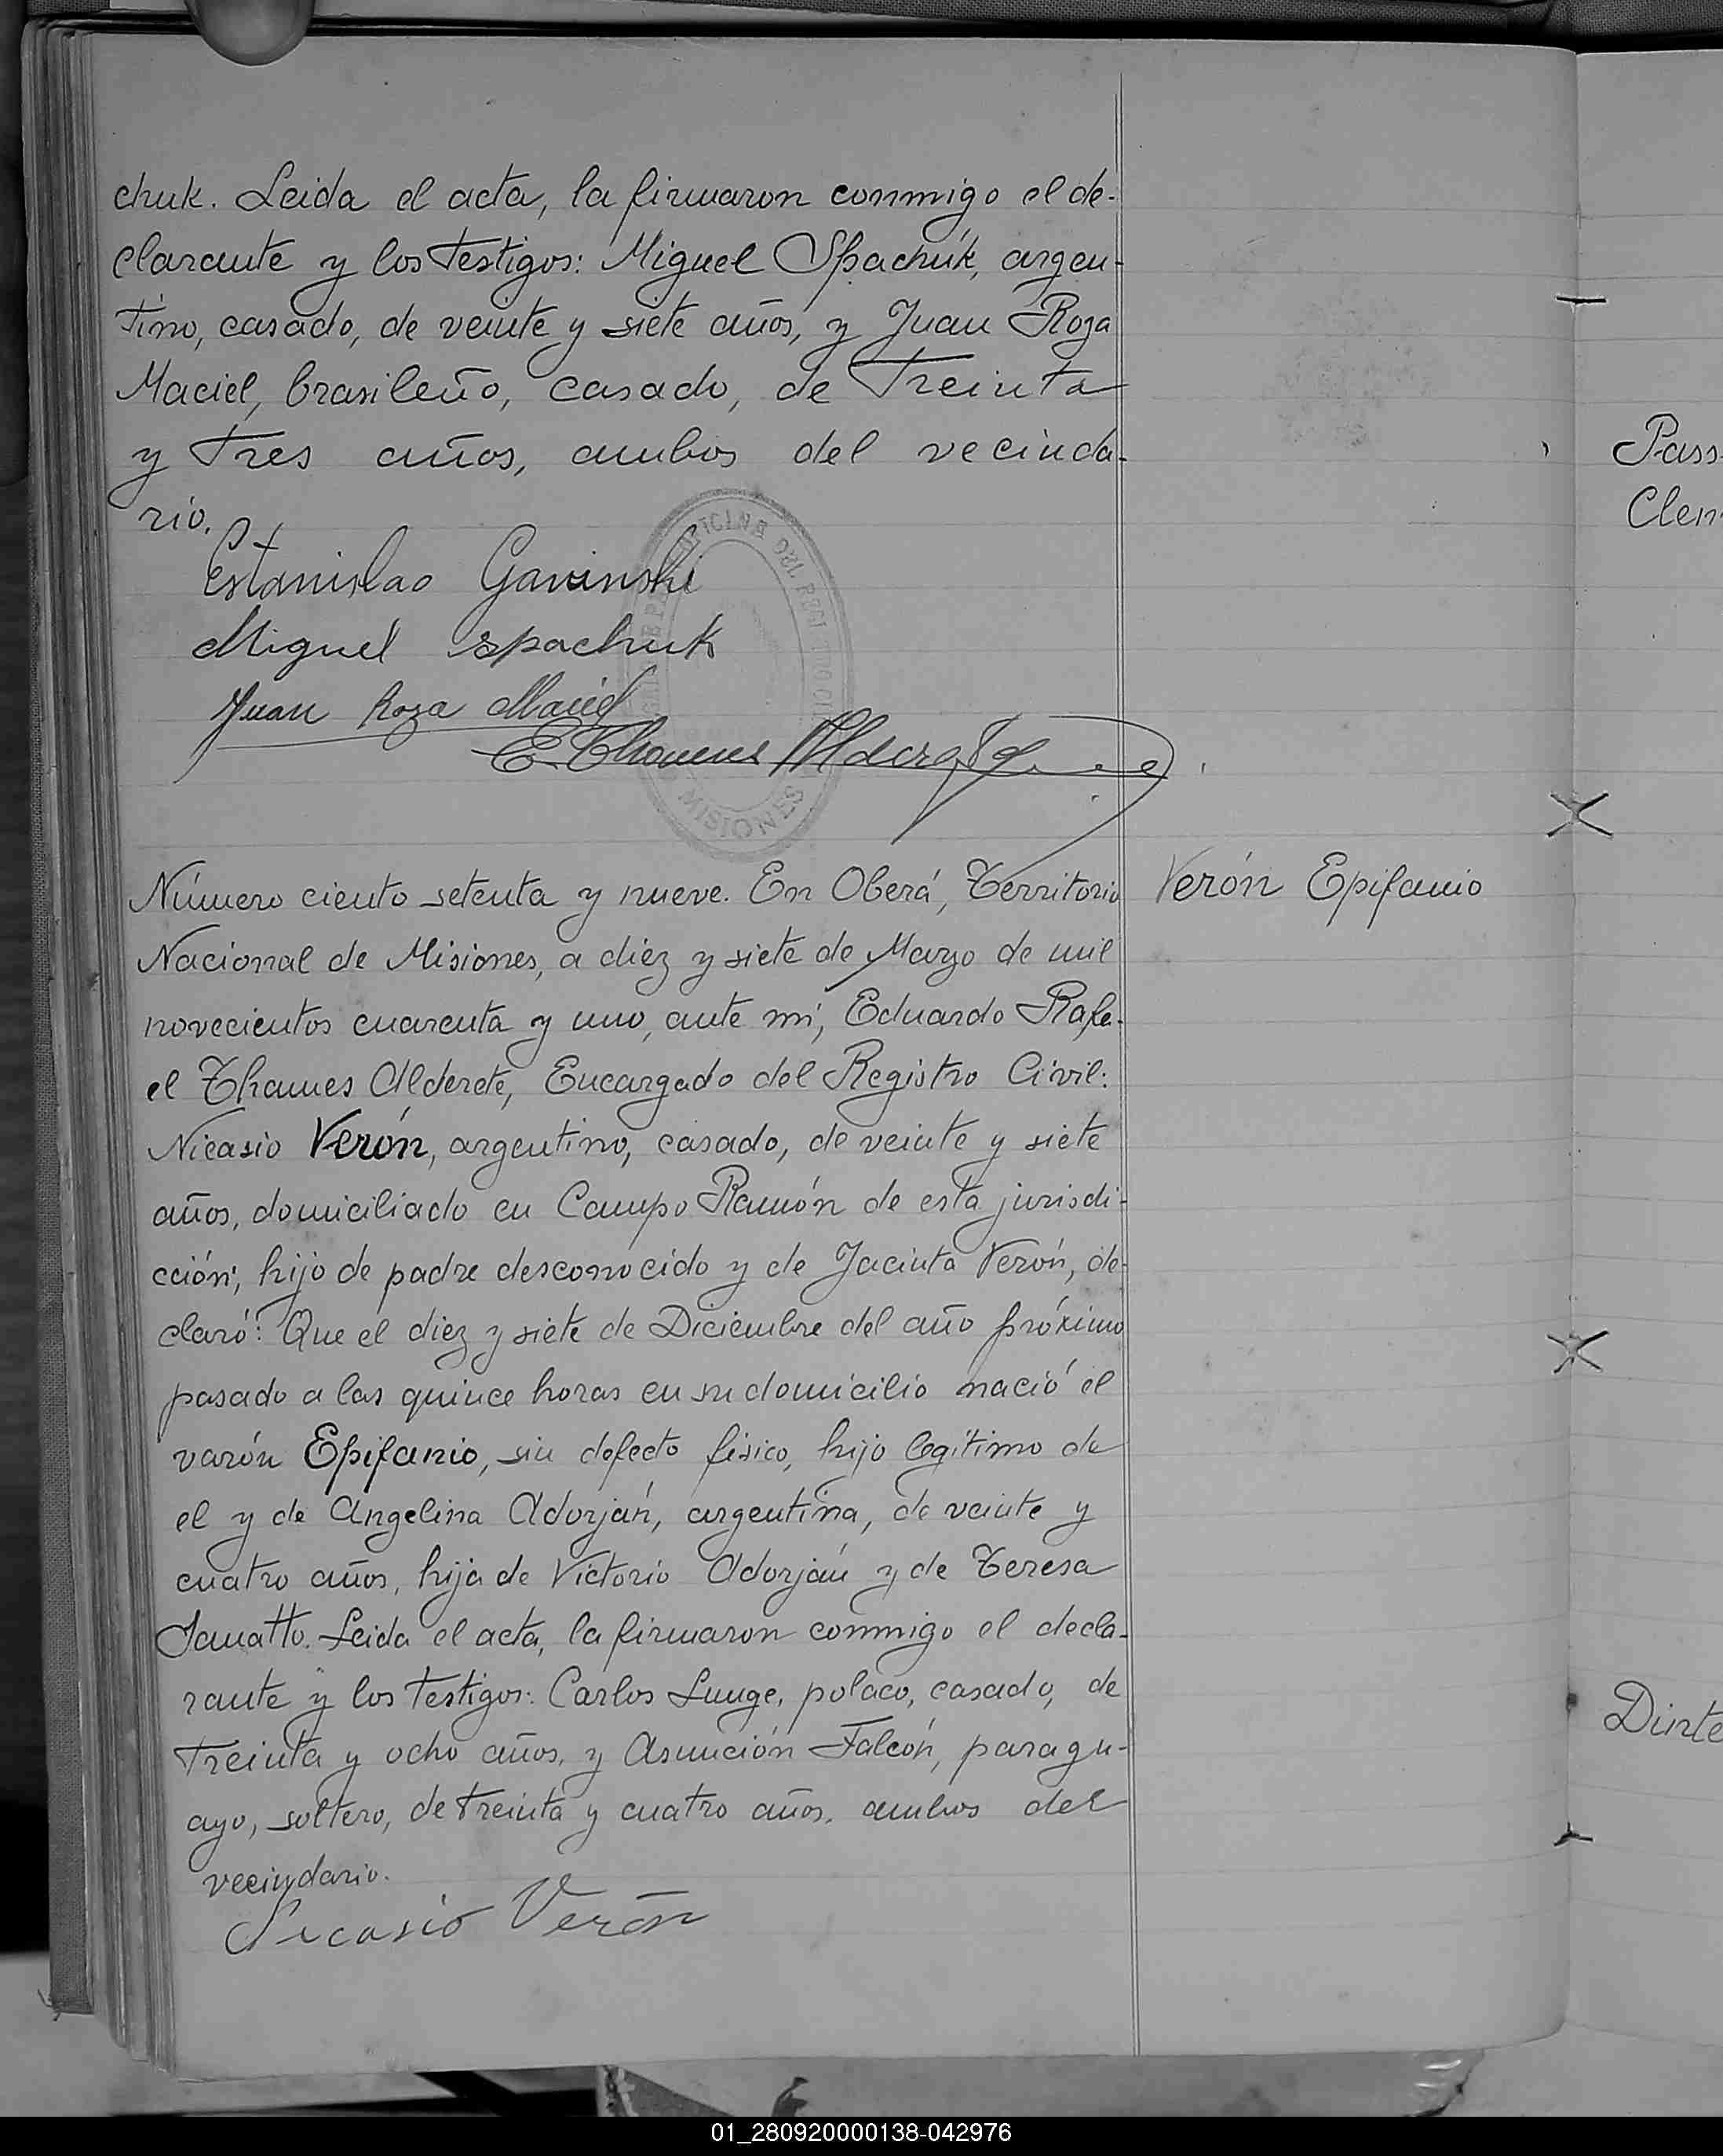 chuk. Leida el acta, la firmaron conmigo el de-
clarante y los testigos: Miguel Spachuk, argen-
tino, casado, de veinte y siete años, y Juan Roza
Maciel, brasileño, casado, de Treinta
y Tres años, ambos del vecinda-
rio.
Estanislao Gavinski
Miguel Spachuk
Juan Roza Maciel
E. Thames Alderete
MISIONES
Número ciento setenta y nueve. En Oberá, Territorio
Verón Epifanio
Nacional de Misiones, a diez y siete de Marzo de mil
novecientos cuarenta y uno, ante mí, Eduardo Rafa-
el Thames Alderete, Encargado del Registro Civil:
Nicasio Verón, argentino, casado, de veinte y siete
años, domiciliado en Campo Ramón de esta jurisdi-
cción, hijo de padre desconocido y de Jacinta Verón, de-
claró: Que el diez y siete de Diciembre del año próximo
pasado a las quince horas en su domicilio nació el
varón Epifanio, sin defecto físico, hijo legítimo de
el y de Angelina Adorján, argentina, de veinte y
cuatro años, hija de Victorio Adorján y de Teresa
Leida el acta, la firmaron conmigo el decla-
rante y los testigos: Carlos Lunge, polaco, casado, de
treinta y ocho años, y Asunción Falcón, paragu-
ayo, soltero, de treinta y cuatro años, ambos del
vecindario.
Nicasio Verón
Pass
Clem
Dinte
01_280920000138-042976